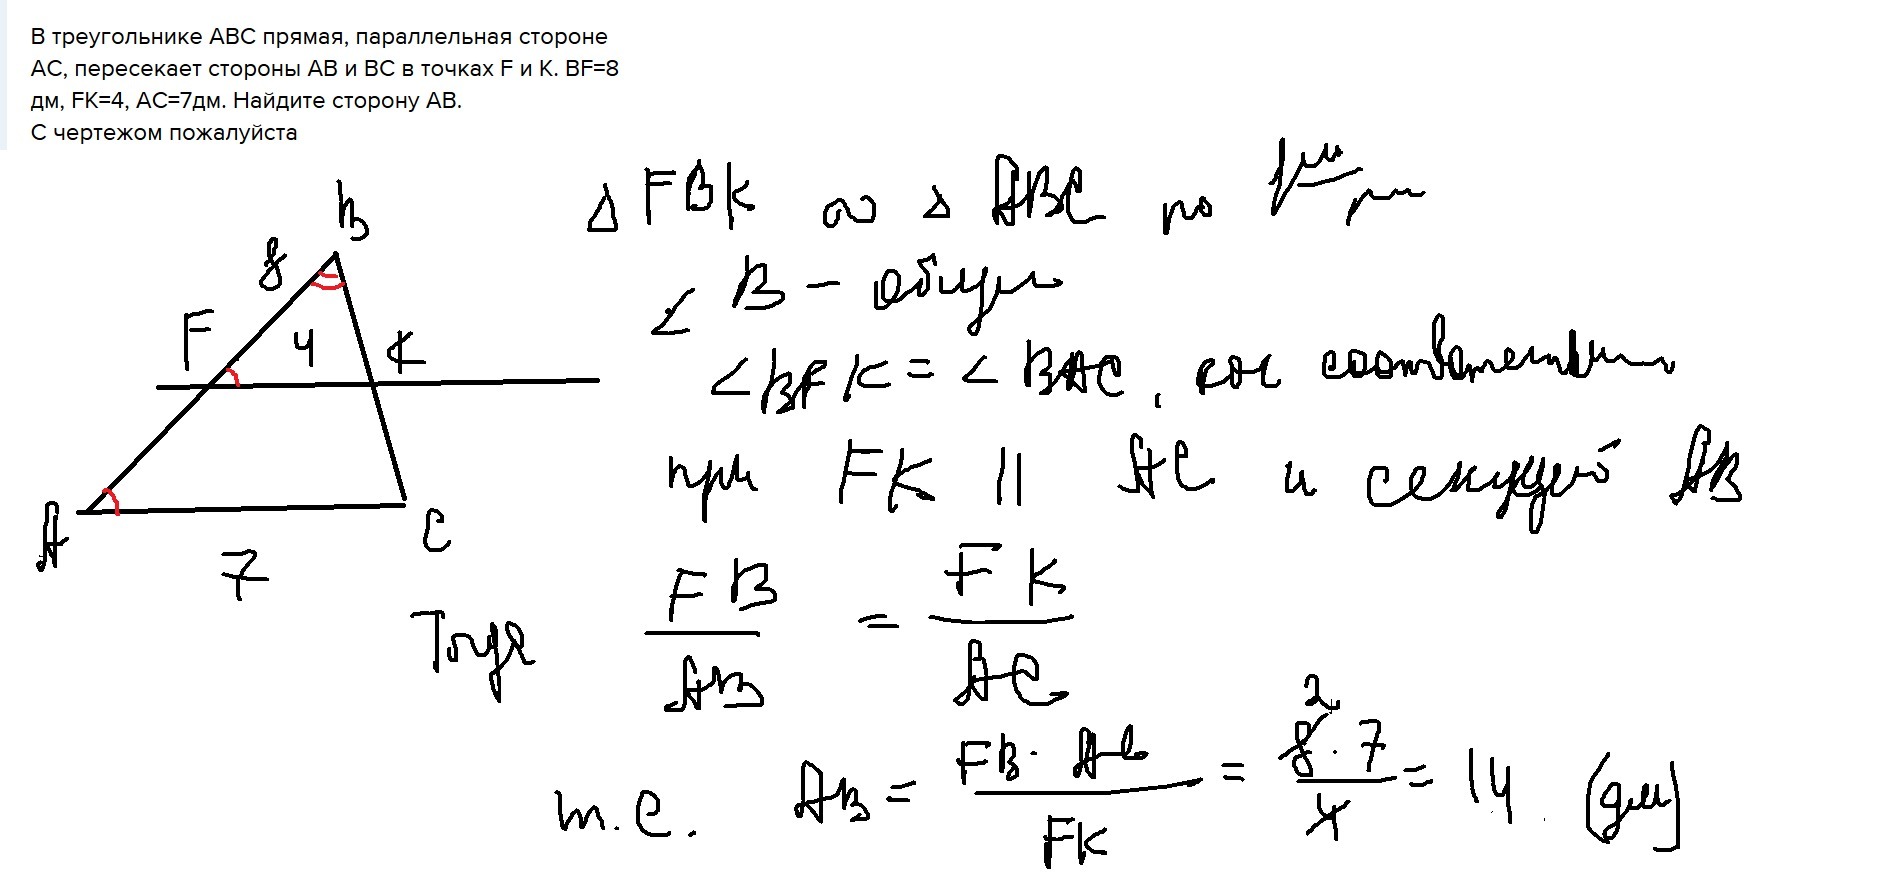 В треугольнике АВС прямая, параллельная стороне
АС, пересекает стороны АВ и ВС в точках F и K. BF=8
дм, FK=4, АС=7дм. Найдите сторону АВ.
С чертежом пожалуйста
B
8
F
4
K
A
C
7
Δ FBK ∾ Δ ABC по
∠ B - общий
∠BFK = ∠BAC, как соответственные
при FK || AC и секущей AB
Тогда FB/AB = FK/AC
т.е. AB = FB · AC / FK = 8 · 7 / 4 = 14 (дм)
2